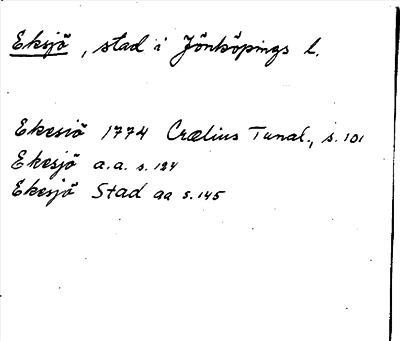 Eksjö, stad i Jönköpings l.
Ekesiö 1774 Crælius Tunal., s. 101
Ekesjö a.a. s. 124
Ekesjö Stad aa s. 145